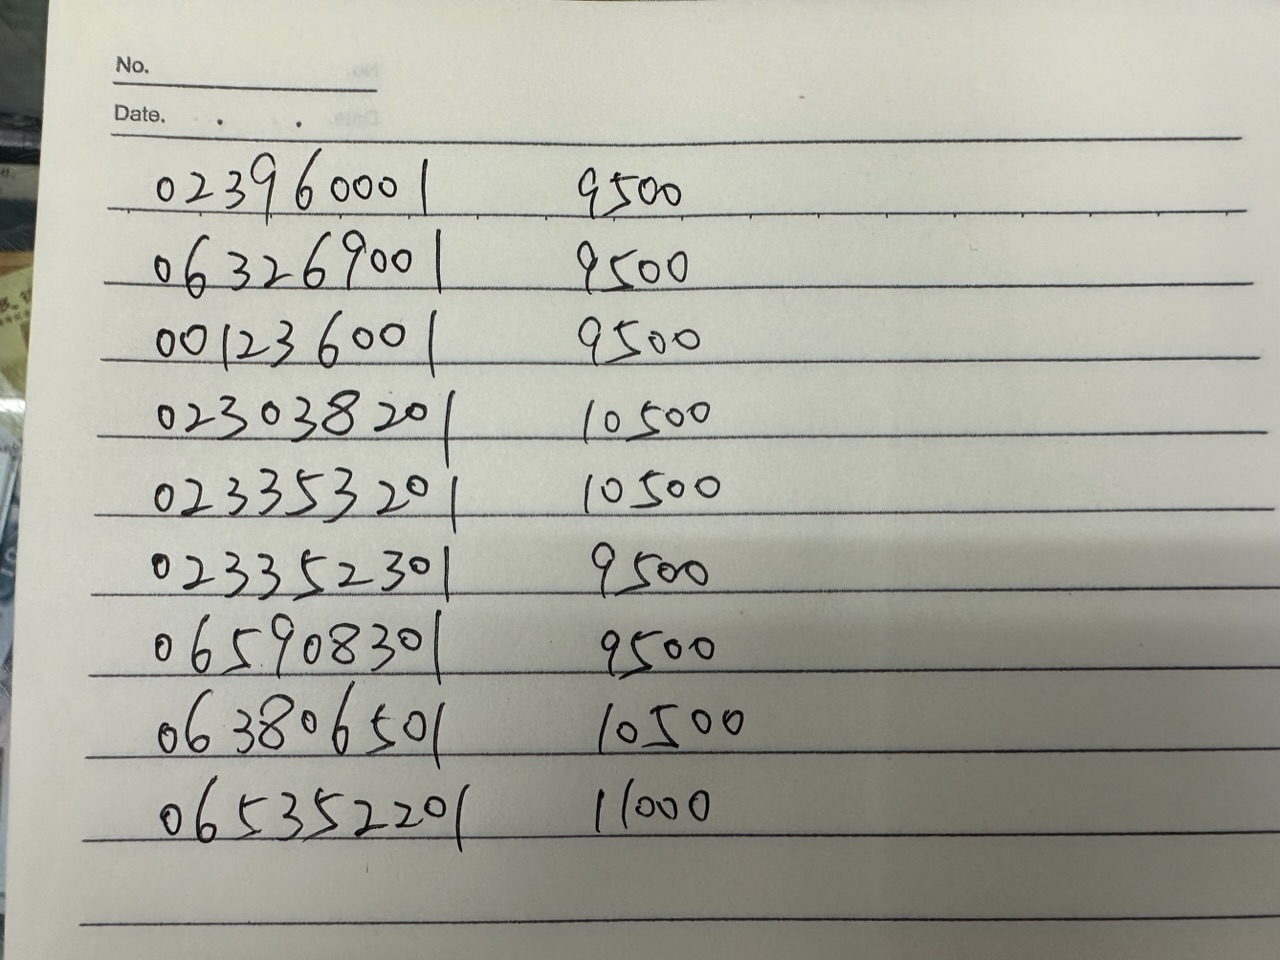 No.
Date. . .
023960001 9500
063269001 9500
001236001 9500
023038201 10500
023353201 10500
023352301 9500
065908301 9500
063806501 10500
065352201 11000